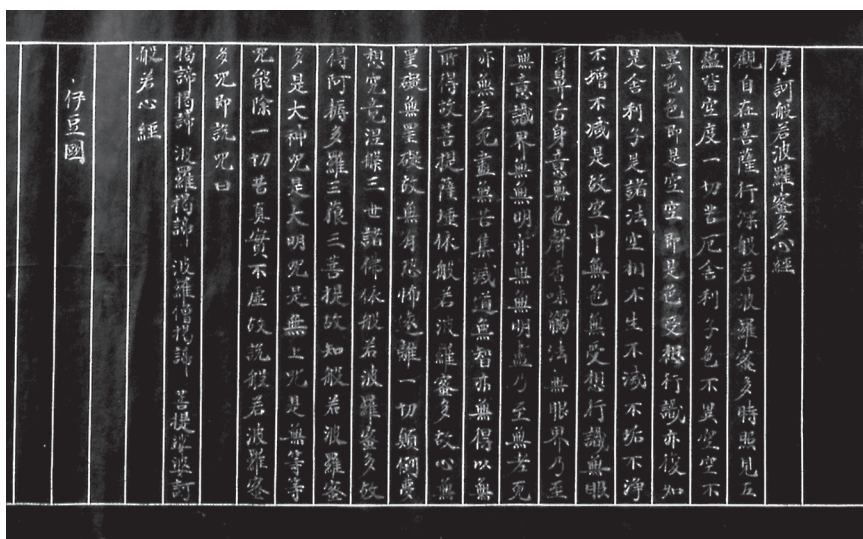 摩訶般若波羅蜜多心經
觀自在菩薩行深般若波羅蜜多時照見五
蘊皆空度一切苦厄舍利子色不異空空不
異色色即是空空即是色受想行識亦復如
是舍利子是諸法空相不生不滅不垢不淨
不增不減是故空中無色無受想行識無眼
耳鼻舌身意無色聲香味觸法無眼界乃至
無意識界無無明亦無無明盡乃至無老死
亦無老死盡無苦集滅道無智亦無得以無
所得故菩提薩埵依般若波羅蜜多故心無
罣礙無罣礙故無有恐怖遠離一切顛倒夢
想究竟涅槃三世諸佛依般若波羅蜜多故
得阿耨多羅三藐三菩提故知般若波羅蜜
多是大神咒是大明咒是無上咒是無等等
咒能除一切苦真實不虛故說般若波羅蜜
多咒即說咒曰
揭諦揭諦 波羅揭諦 波羅僧揭諦 菩提娑婆訶
般若心經
伊豆國